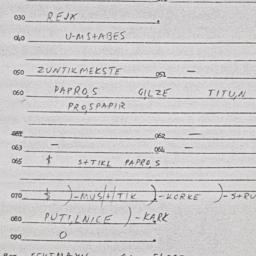 030 REJK
040 U-MS+ABES
050 ZUNTIKMEKSTE 051 —
060 PAPRO,S GILZE TITU,N
PRO,SPAPIR
062 —
063 — 064 —
065 $ S+TIKL PAPRO,S
070 $ )-MUS/+/TIK )-KORKE )-S+RU
080 PUTI,LNICE )-KARK
090 O